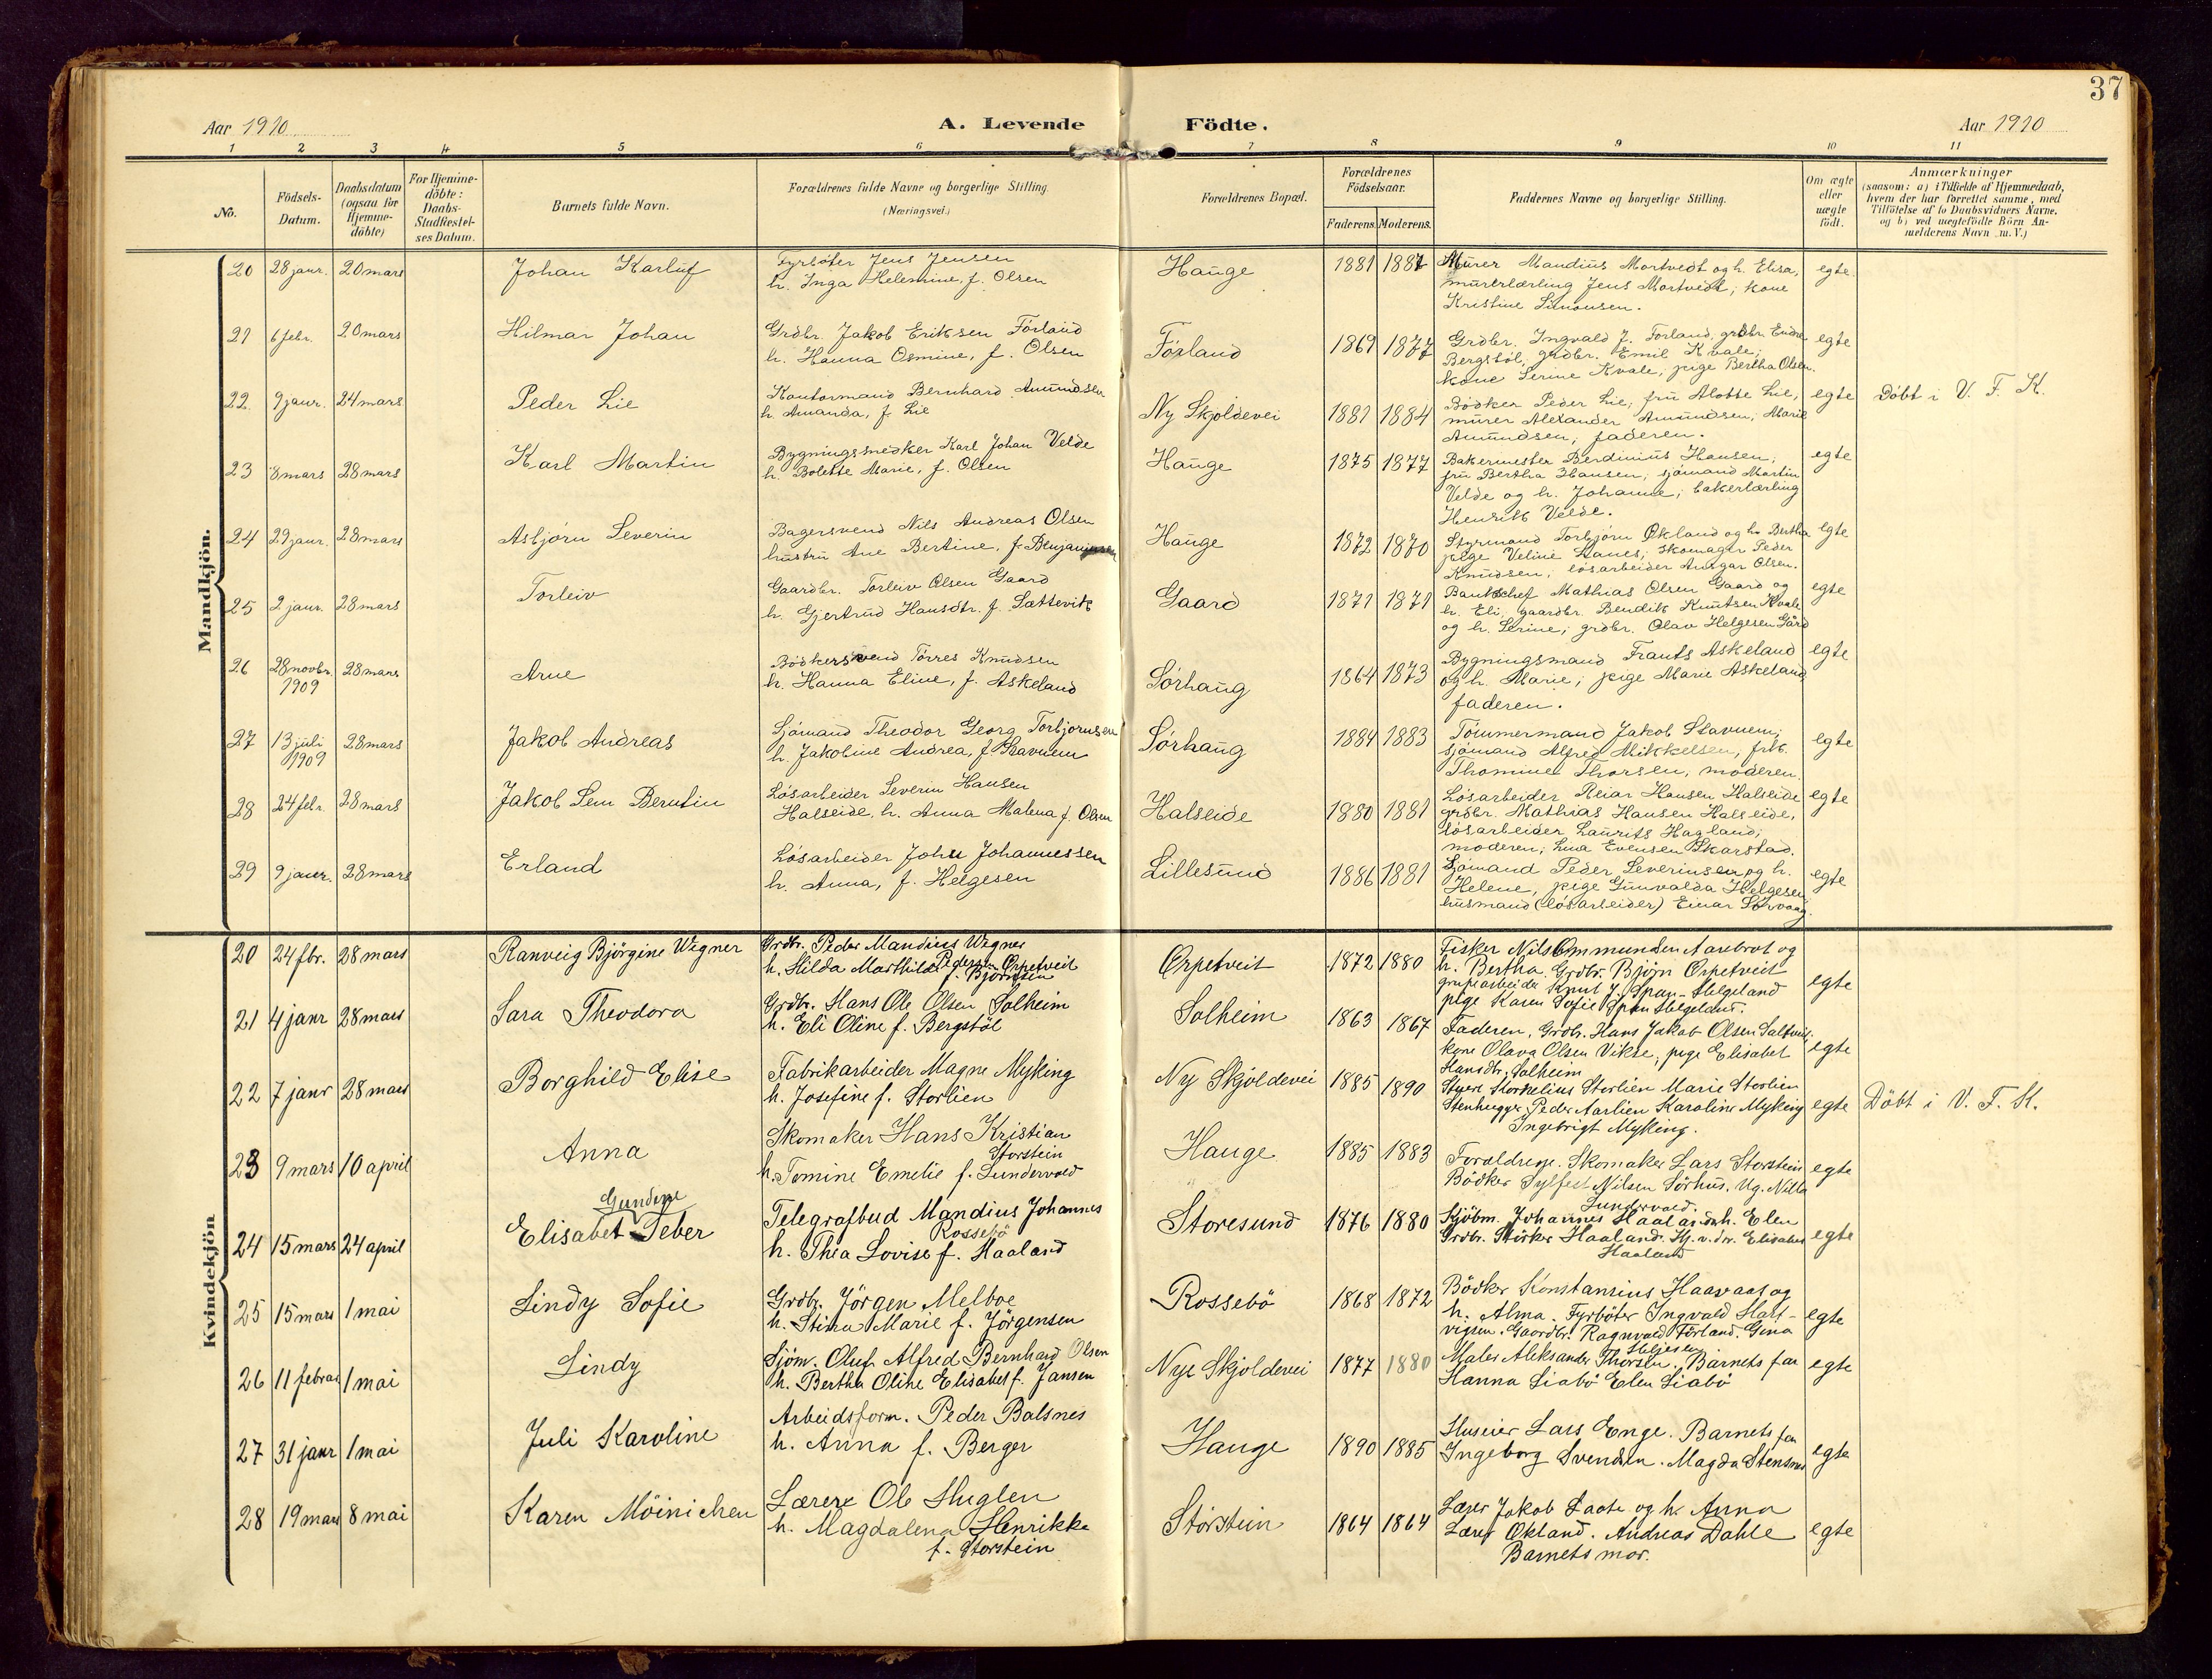 37
Aar 1910
A. Levende Födte.
Aar 1910
1 2 3 4 5 6 7 8 9 10 11
No.
Födsels-
Datum.
Daabsdatum
(ogsaa for
Hjemme-
döbte)
For Hjemme-
döbte:
Daabs-
Stadfæstel-
ses Datum.
Barnets fulde Navn.
Forældrenes fulde Navne og borgerlige Stilling.
(Næringsvei.)
Forældrenes Bopæl.
Forældrenes
Födselsaar.
Faderens. Moderens.
Faddernes Navne og borgerlige Stilling.
Om ægte
eller
uægte
födt.
Anmærkninger
(saasom: a) i Tilfælde af Hjemmedaab,
hvem der har forrettet samme, med
Tilföielse af to Daabsvidners Navne,
og b) ved uægtefödte Börn An-
melderens Navn m. V.)
Mandkjön.
20 28 janr. 20 mars Johan Karluf
Fyrböter Jens Jensen
h. Inga Helemine, f. Olsen
Hauge 1881 1887
Murer Mandius Mortvedt og h. Elisa,
murerlærling Jens Mortvedt, kone
Kristine Simonsen.
egte.
21 6 febr. 20 mars Hilmar Johan
Grdbr. Jakob Eriksen Förland
h. Hanna Osmine, f. Olsen
Förland 1869 1877
Grdbr. Ingvald J. Förland, grdbr. Endre
Bergstöl, grdbr. Emil Kvale;
kone Serine Kvale, pige Bertha Olsen.
egte
22 9 janr. 24 mars Peder Lie
Kontormand Bernhard Amundsen
h. Amanda, f. Lie
Ny Skjoldevei 1881 1884
Bödker Peder Lie; fru Alotte Lie,
murer Alexander Amundsen, Marie
Amundsen, faderen.
egte Döbt i V. F. K.
23 8 mars 28 mars Karl Martin
Bygningssnedker Karl Johan Velde
h. Bolette Marie, f. Olsen
Hauge 1875 1877
Bakermester Berdinius Hansen;
fru Bertha Hansen; sjömand Martin
Velde og h. Johanne; bakerlærling
Henrik Velde.
egte
24 29 janr. 28 mars Asbjörn Severin
Bagersvend Nils Andreas Olsen
hustru Ane Bertine, f. Benjaminsen
Hauge 1872 1870
Styrmand Torbjörn Ökland og h. Bertha
pige Veline Stanes; skomager Peder
Knudsen; lösarbeider Ansgar Olsen.
egte
25 2 janr. 28 mars Torleiv
Gaardbr. Torleiv Olsen Gaard
h. Gjertrud Hansdtr. f. Sættevik
Gaard 1871 1871
Bankchef Mathias Olsen Gaard og
h. Eli, gaardbr. Bendik Knutsen Kvale
og h. Serine; grdbr. Olav Helgesen Gård
egte
26 28 novbr. 1909 28 mars Arne
Bödkersvend Törres Knudsen
h. Hanna Eline, f. Askeland
Sörhaug 1864 1873
Bygningsmand Frants Askeland
og h. Marie; pige Marie Askeland,
faderen.
egte
27 13 juli 1909 28 mars Jakob Andreas
Sjömand Theodor Georg Torbjörnsen
h. Jakobine Andrea, f. Stavnem
Sörhaug 1884 1883
Tömmermand Jakob Stavnem;
sjömand Alfred Mikkelsen, frk.
Thomine Thorsen, moderen.
egte
28 24 febr. 28 mars Jakob Sem Berntin
Lösarbeider Severin Hansen
Halseide, h. Anna Malena f. Olsen
Halseide 1880 1881
Lösarbeider Reiar Hansen Halseide
grdbr. Mathias Hansen Halseide,
lösarbeider Laurits Hagland;
moderen; Lina Evensen Skarstad.
egte
29 9 janr. 28 mars Erland
Lösarbeider John Johannessen
h. Anna, f. Helgesen
Lillesund 1886 1881
Sjömand Peder Severinsen og h.
Helene, pige Gunvalda Helgesen
husmand (lösarbeider) Einar Sörvaag.
egte
Kvindekjön
20 24 fbr. 28 mars Ranveig Björgine Wegner
Grdbr. Peder Mandius Wegner
Pedersen Orpetveit
h. Hilda Marthilde f. Björnsen
Orpetveit 1872 1880
Fisker Nils Ommundsen Aarebrot og
h. Bertha. Grdbr. Björn Orpetveit
grubearbeider Knut J. Span-Helgeland
pige Karen Sofie Span Helgeland.
egte
21 4 janr 28 mars Sara Theodora
Grdbr. Hans Ole Olsen Solheim
h. Eli Oline f. Bergstöl
Solheim 1863 1867
Faderen, Grdbr. Hans Jakob Olsen Saltveit
kone Olava Olsen Vikse; pige Elisabet
Hansdtr. Solheim
egte
22 7 janr 28 mars Borghild Elise
Fabrikarbeider Magne Myking
h. Josefine f. Storlien
Ny Skjoldevei 1885 1890
Storkelius Storlien Marie Storlien
Stenhugger Peder Aarlien Karoline Myking
Ingebrigt Myking.
egte Döbt i V. F. K.
23 9 mars 10 april Anna
Skomaker Hans Kristian
Storstein
h. Tomine Emelie f. Sundervold
Hauge 1885 1883
Forældrene. Skomaker Lars Storstein
Bödker Sylfest Nilsen Sörhus. Ug. Nilla
Sundervold.
egte
24 15 mars 24 april Elisabet Gundene Seber
Telegrafbud Mandius Johannes
Rossebö
h. Thea Lovise f. Haaland
Storesund 1876 1880
Kjöbm. Johannes Haaland h. Elen
Grdbr. Störker Haaland. Elisabet
Haaland
egte
25 15 mars 1 mai Lindy Sofie
Grdbr. Jörgen Melboe
h. Stina Marie f. Jörgensen
Rossebö 1868 1872
Bödker Konstansius Haavaas og
h. Alma. Fyrböter Ingvald Hart-
vigsen. Gaardbr. Ragnvald Förland. Gina
Helgesen
egte
26 11 februar 1 mai Lindy
Sjöm. Oluf Alfred Bernhard Olsen
h. Bertha Oline Elisabet f. Jansen
Nye Skjoldevei 1877 1880
Maler Aleksander Thorsen. Barnets far
Hanna Liabö Elen Liabö
egte
27 31 janr 1 mai Juli Karoline
Arbeidsform. Peder Balsnes
h. Anna f. Berger
Hauge 1890 1885
Huseier Lars Enge. Barnets far
Ingeborg Svendsen. Magda Stensnes
egte
28 19 mars 8 mai Karen Möinichen
Lærere Ole Huglen
h. Magdalena Henrikke
f. Storstein
Störstein 1864 1864
Lærer Jakob Laate og h. Anna
Lærer Ökland. Andreas Dahle
Barnets mor.
egte